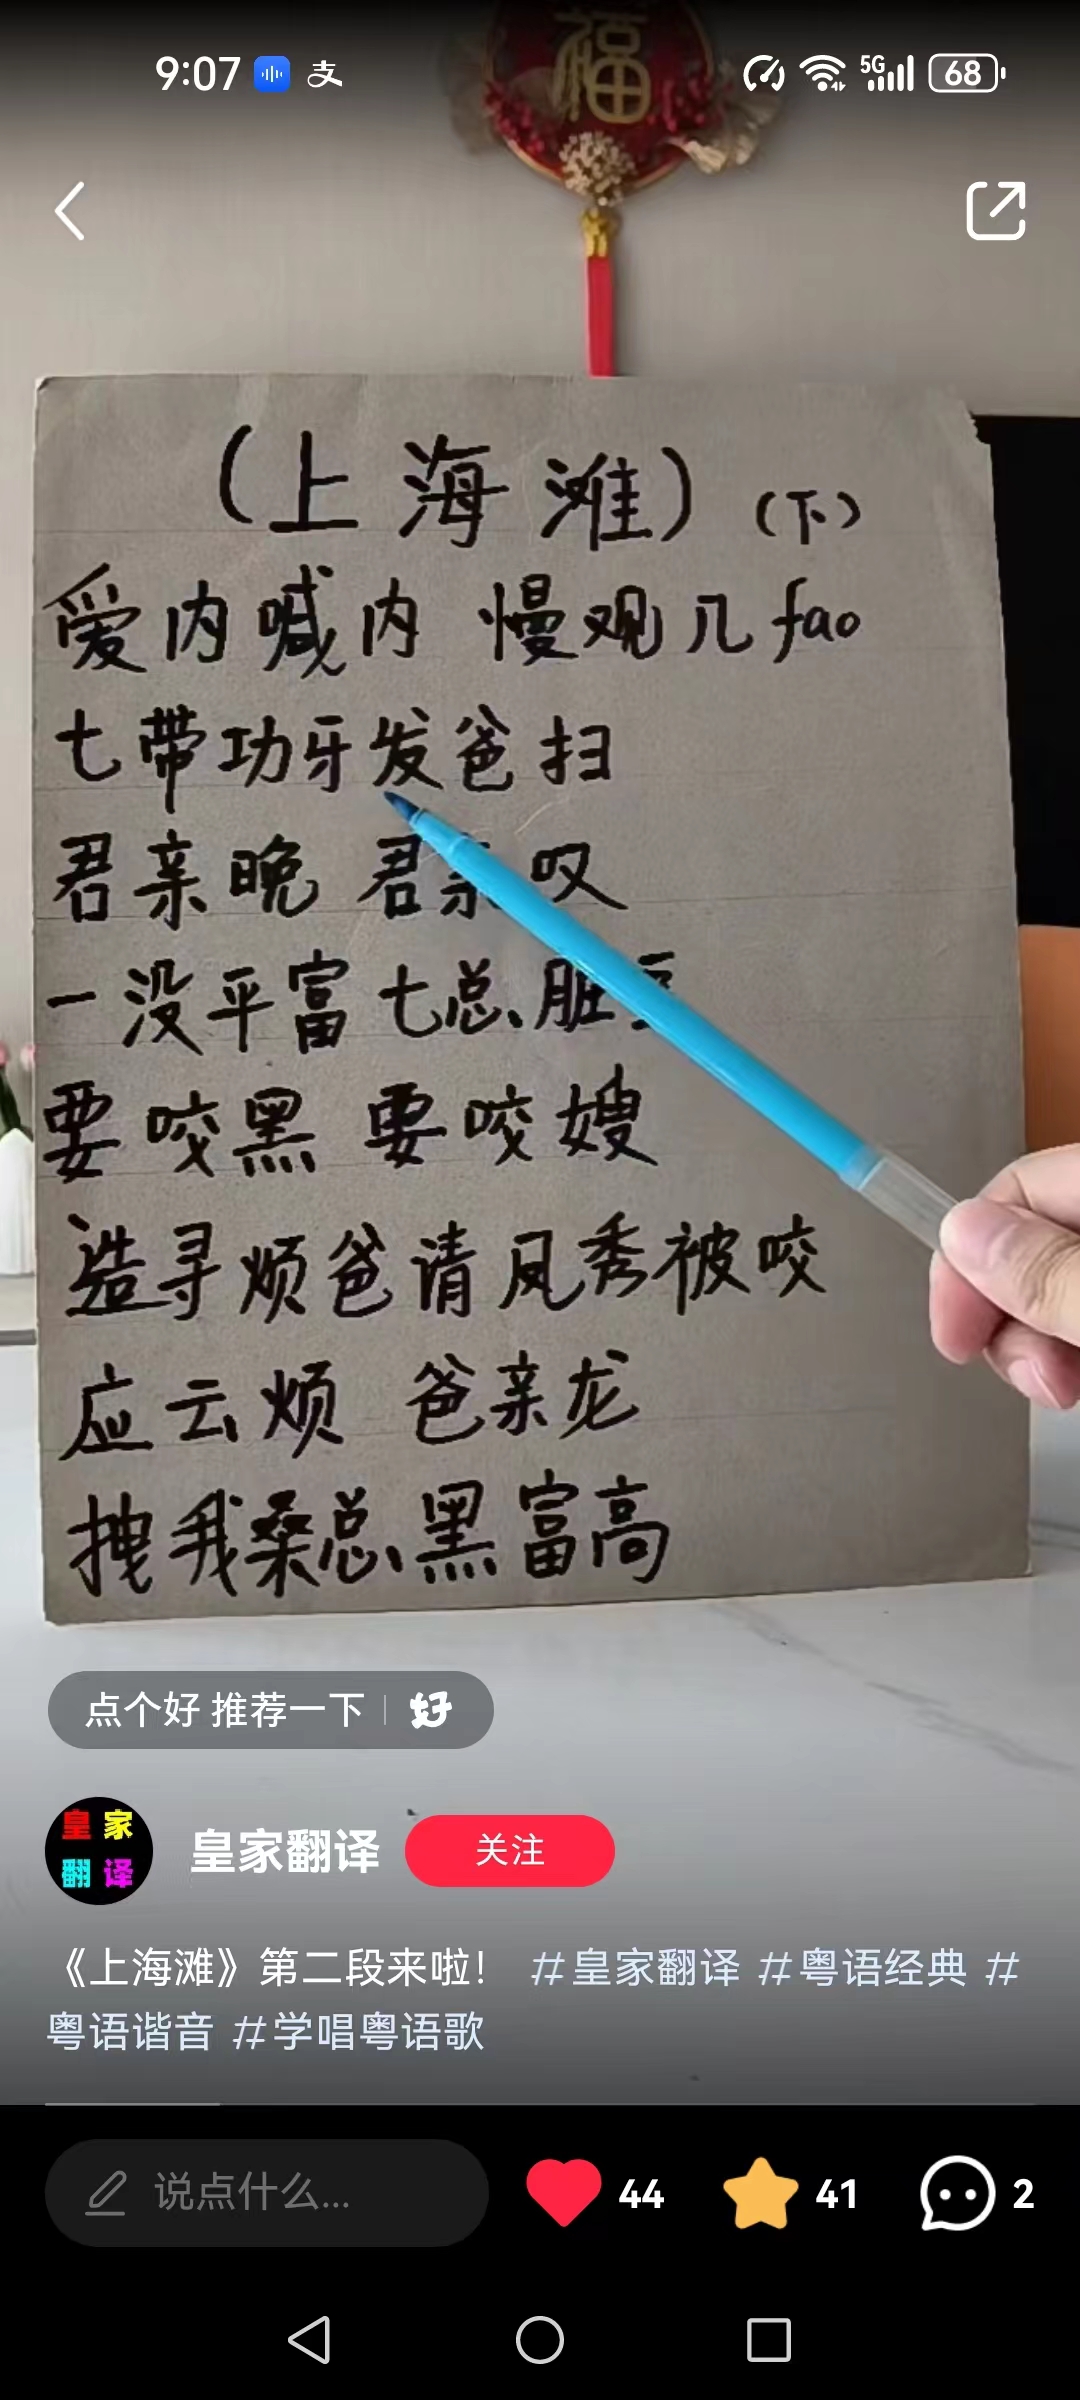 9:07 支 5G 68
福
(上海滩)(下)
爱内喊内 慢观几fao
七带功牙发爸扫
君亲晚 君亲叹
一没平富七总脏
要咬黑 要咬嫂
造寻烦爸请凤秀被咬
应云烦 爸亲龙
拽我桑总黑富高
点个好 推荐一下 | 好
皇家翻译
皇家翻译 关注
《上海滩》第二段来啦! #皇家翻译 #粤语经典 #
粤语谐音 #学唱粤语歌
说点什么... 44 41 2